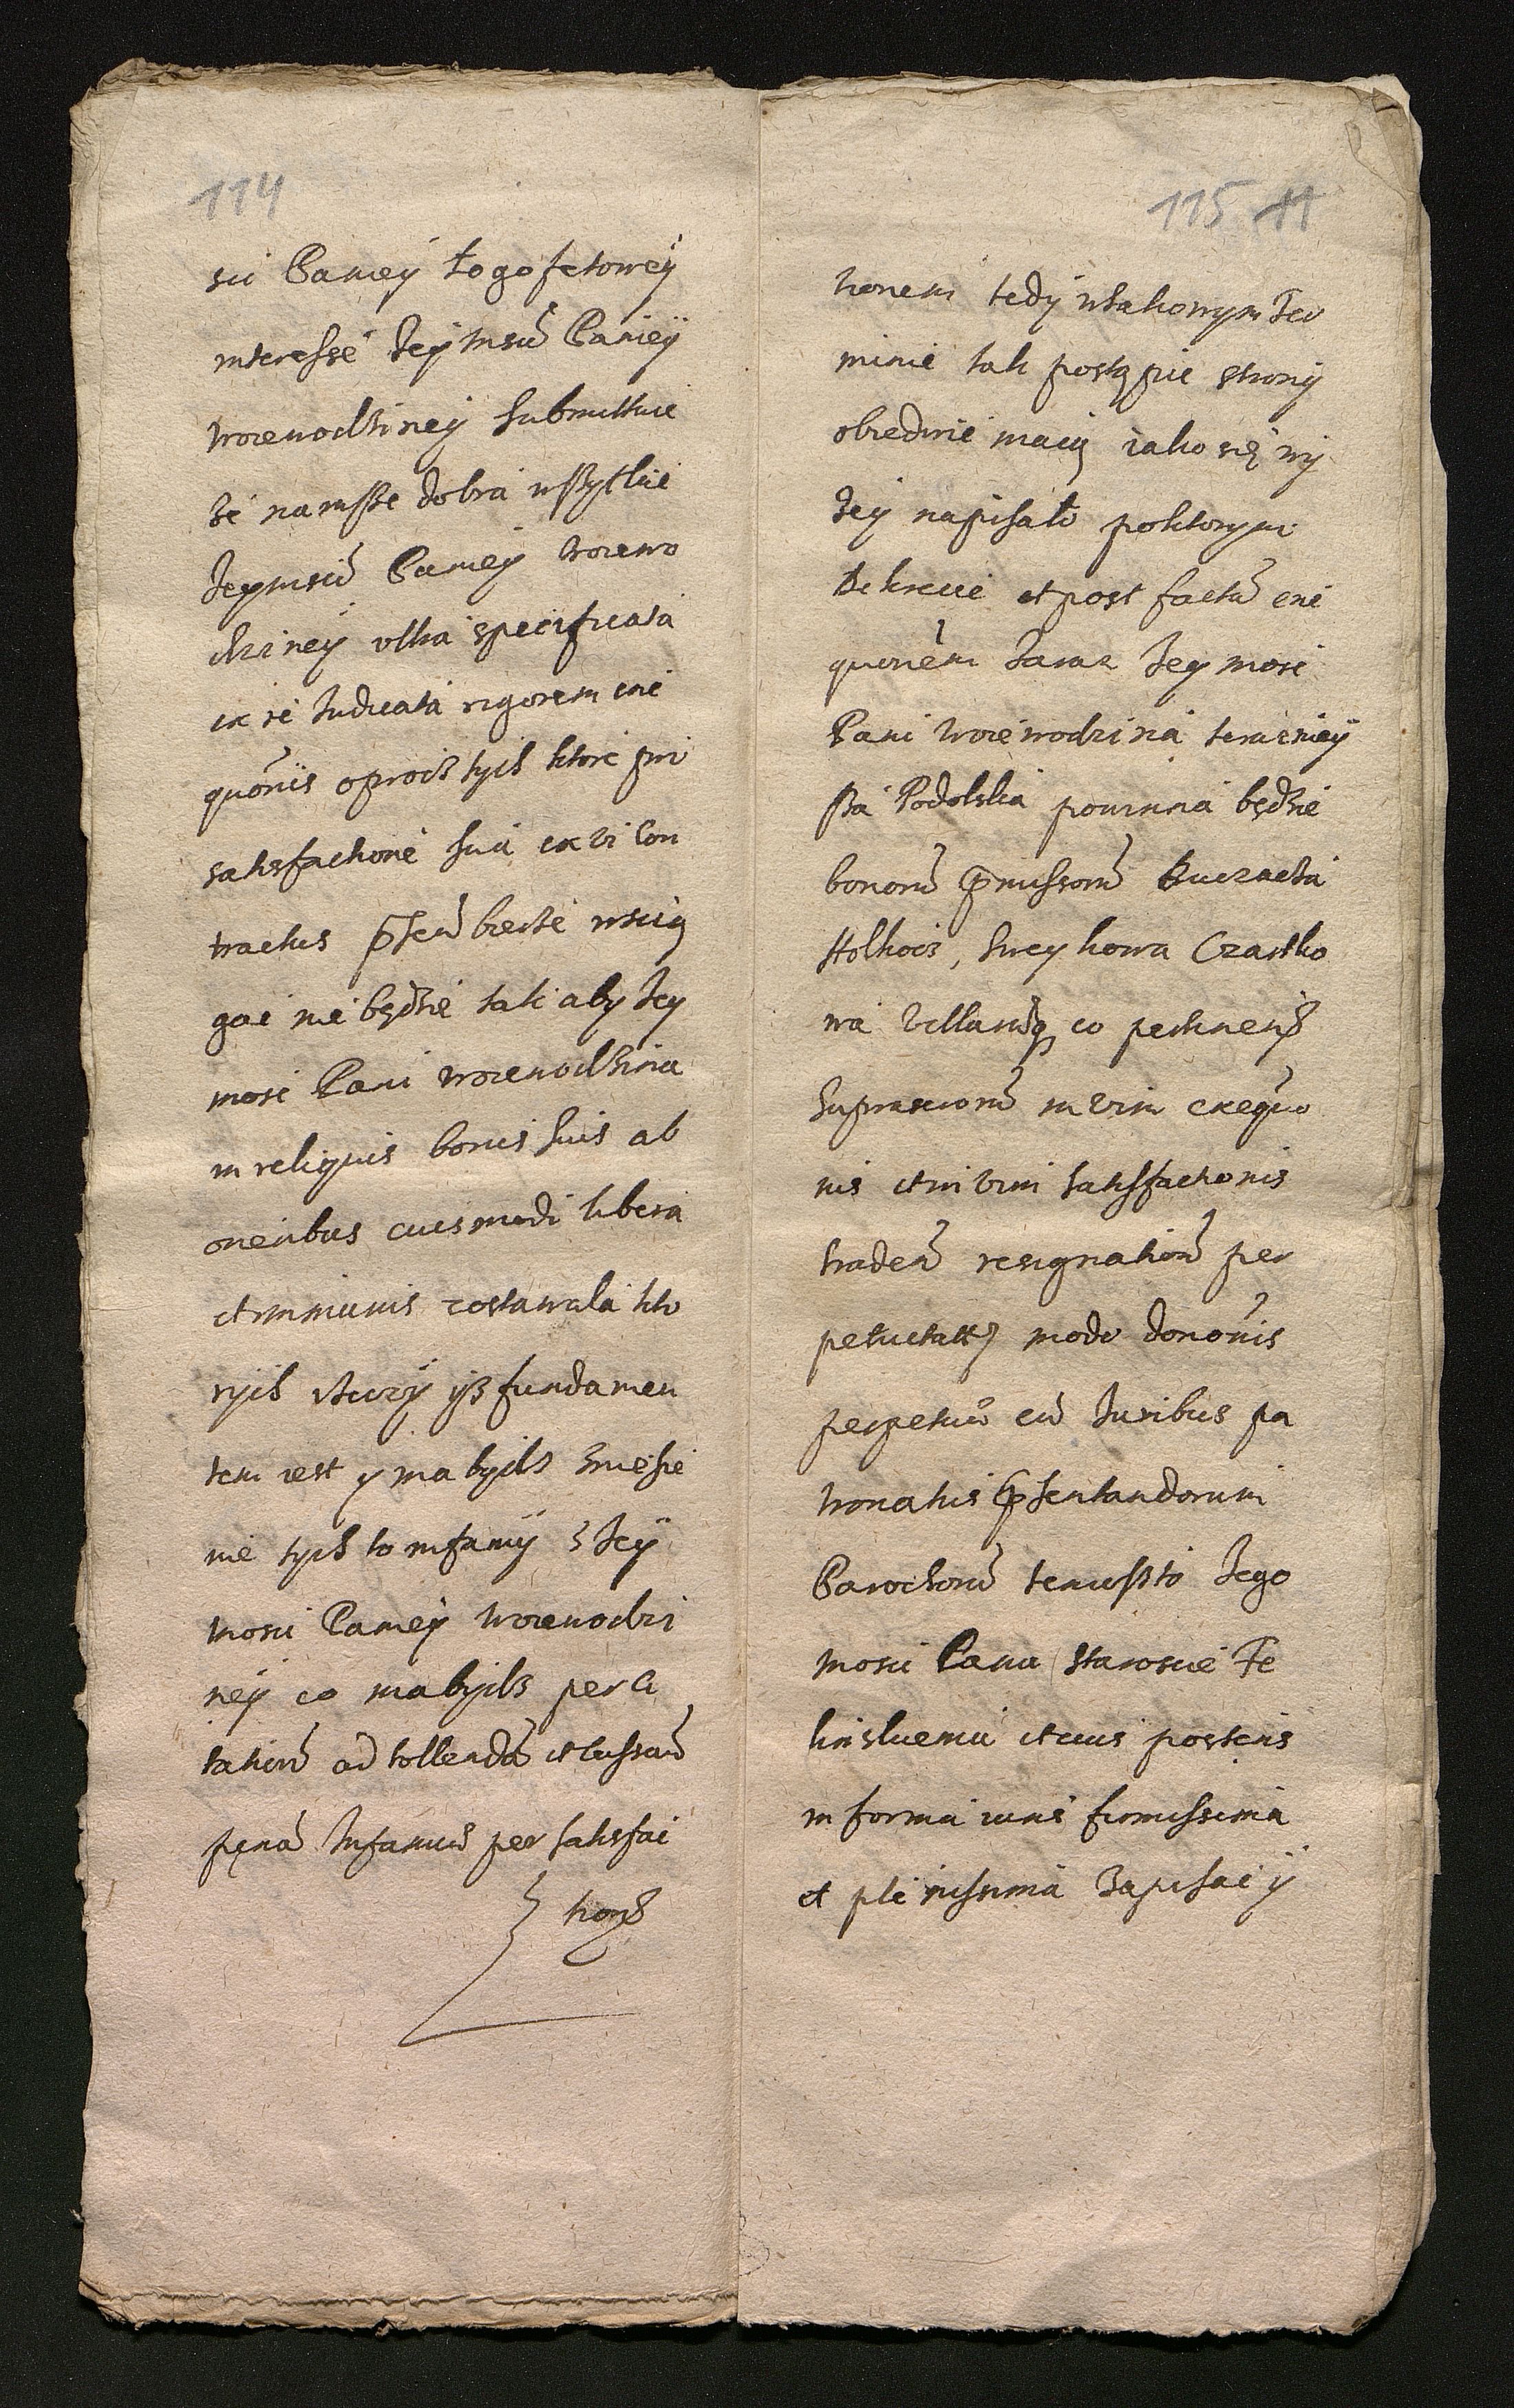 114
sci Paniey Łogofetowey
interesse Jey Mscũ Paniey
woiewodziney submittuie
że na insze dobra wszytkie
Jeymsciũ Paniey woiewo
dziney ulla specificata
ex re iudicata rigorem exe
quonis oprocz tych ktore pri
satisfactione sua ex vi con
tractus pñseũ bierze wscią
gac nie będzie tak aby Jey
mosc Pani woiewodzina
in reliquis bonis suis ab
oneribus cuiusmodi libera
et immunis zostawała kto
rych rzeczy ysz fundamen
tem iest y ma bydz zniesie
nie tych to infamiy z Jey
mosci Paniey woiewodzi
ney co ma bydz per ci
tationẽ ad tollendã et cassanđ
pęnã infamiæ per satisfac
tionẽ
115 11
tionem tedy w takowym ter
minie tak postąpic strony
obiedwie maią iako się wy
żey napisało po ktorym
dekrecie et post factã exe
quonem zaraz Jey mosc
Pani woiewodzina tericniey
sza Podolska powinna będzie
bonorũ p̃missorũ Buczacza
Stołkocz, Sweykowa Czartko
wa villarũq̃ eo pertinenẽ
suprascriorũ in vim exequo
nis et in vim satisfactionis
traden̄ resignationẽ per
petuitatis modo dononis
perpetuæ cũ iuribus pa
tronatus p̃sentandorum
Parochorũ temuszto Jego
mosci Panu Staroscie Te
linskiemu et eius posteris
in forma iuris firmissima
et plenissima zapisac y